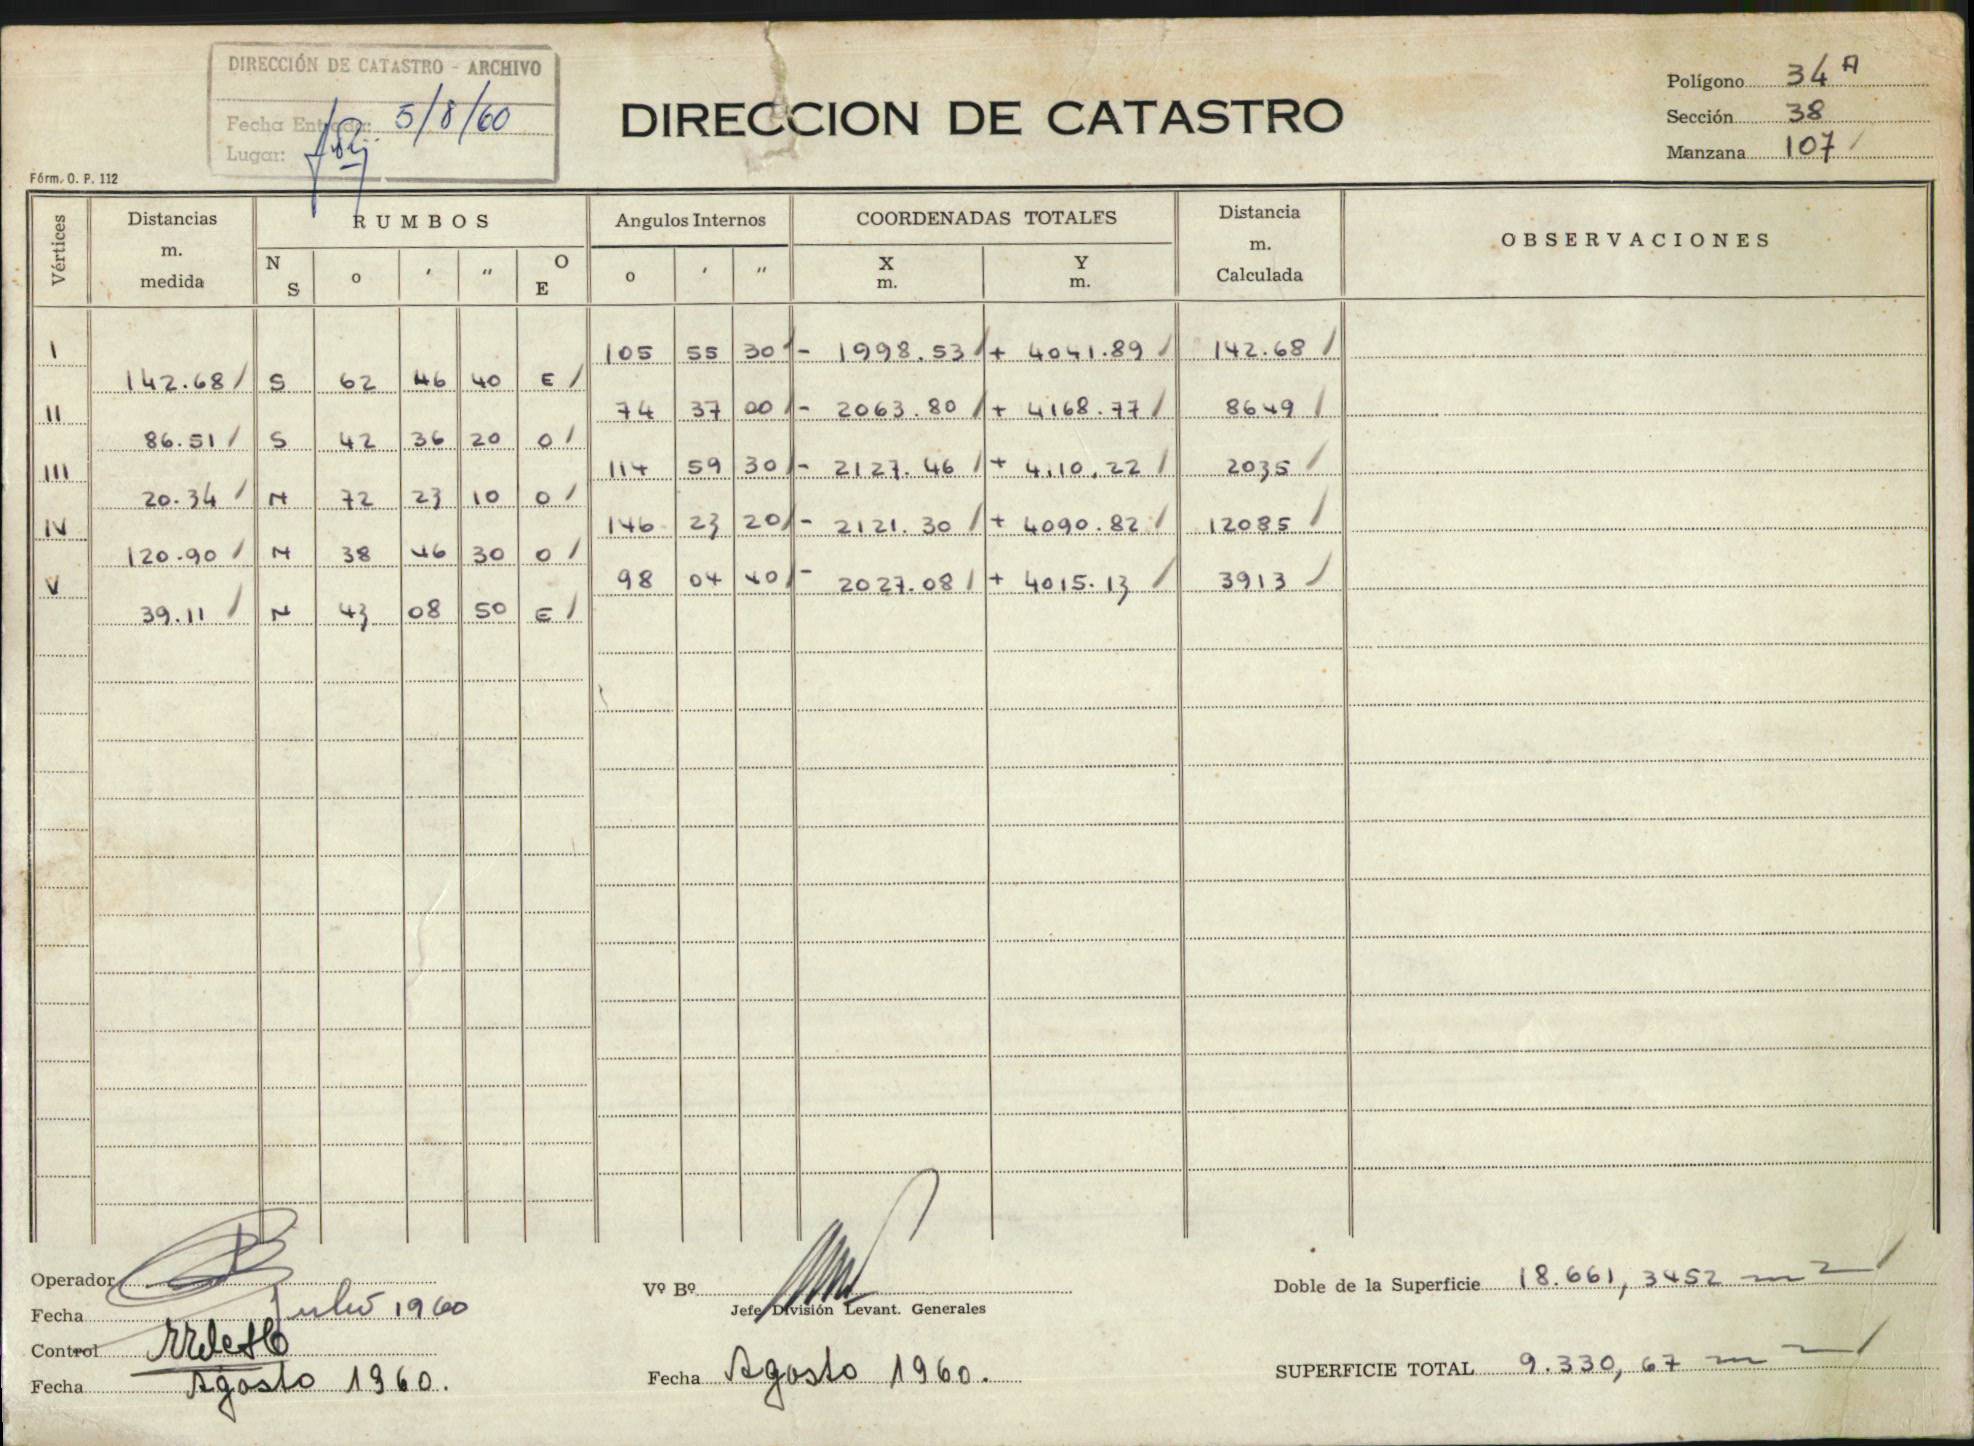 DIRECCIÓN DE CATASTRO - ARCHIVO
Fecha Entrada: 5/8/60
Lugar:
DIRECCION DE CATASTRO
Polígono 34 A
Sección 38
Manzana 107
Fórm. O. P. 112
Vértices Distancias m. medida RUMBOS Angulos Internos COORDENADAS TOTALES Distancia m. Calculada OBSERVACIONES
N S o ' '' O E o ' '' X m. Y m.
I 105 55 30 - 1998.53 + 4041.89 142.68
142.68 S 62 46 40 E
II 74 37 00 - 2063.80 + 4168.77 8649
86.51 S 42 36 20 O
III 114 59 30 - 2127.46 + 4110.22 2035
20.34 N 72 23 10 O
IV 146 23 20 - 2121.30 + 4090.82 12085
120.90 N 38 46 30 O
V 98 04 40 - 2027.08 + 4015.13 3913
39.11 N 43 08 50 E
Operador
Fecha Julio 1960
Control
Fecha Agosto 1960.
Vº Bº
Jefe División Levant. Generales
Fecha Agosto 1960.
Doble de la Superficie 18.661,3452 m2
SUPERFICIE TOTAL 9.330,67 m2